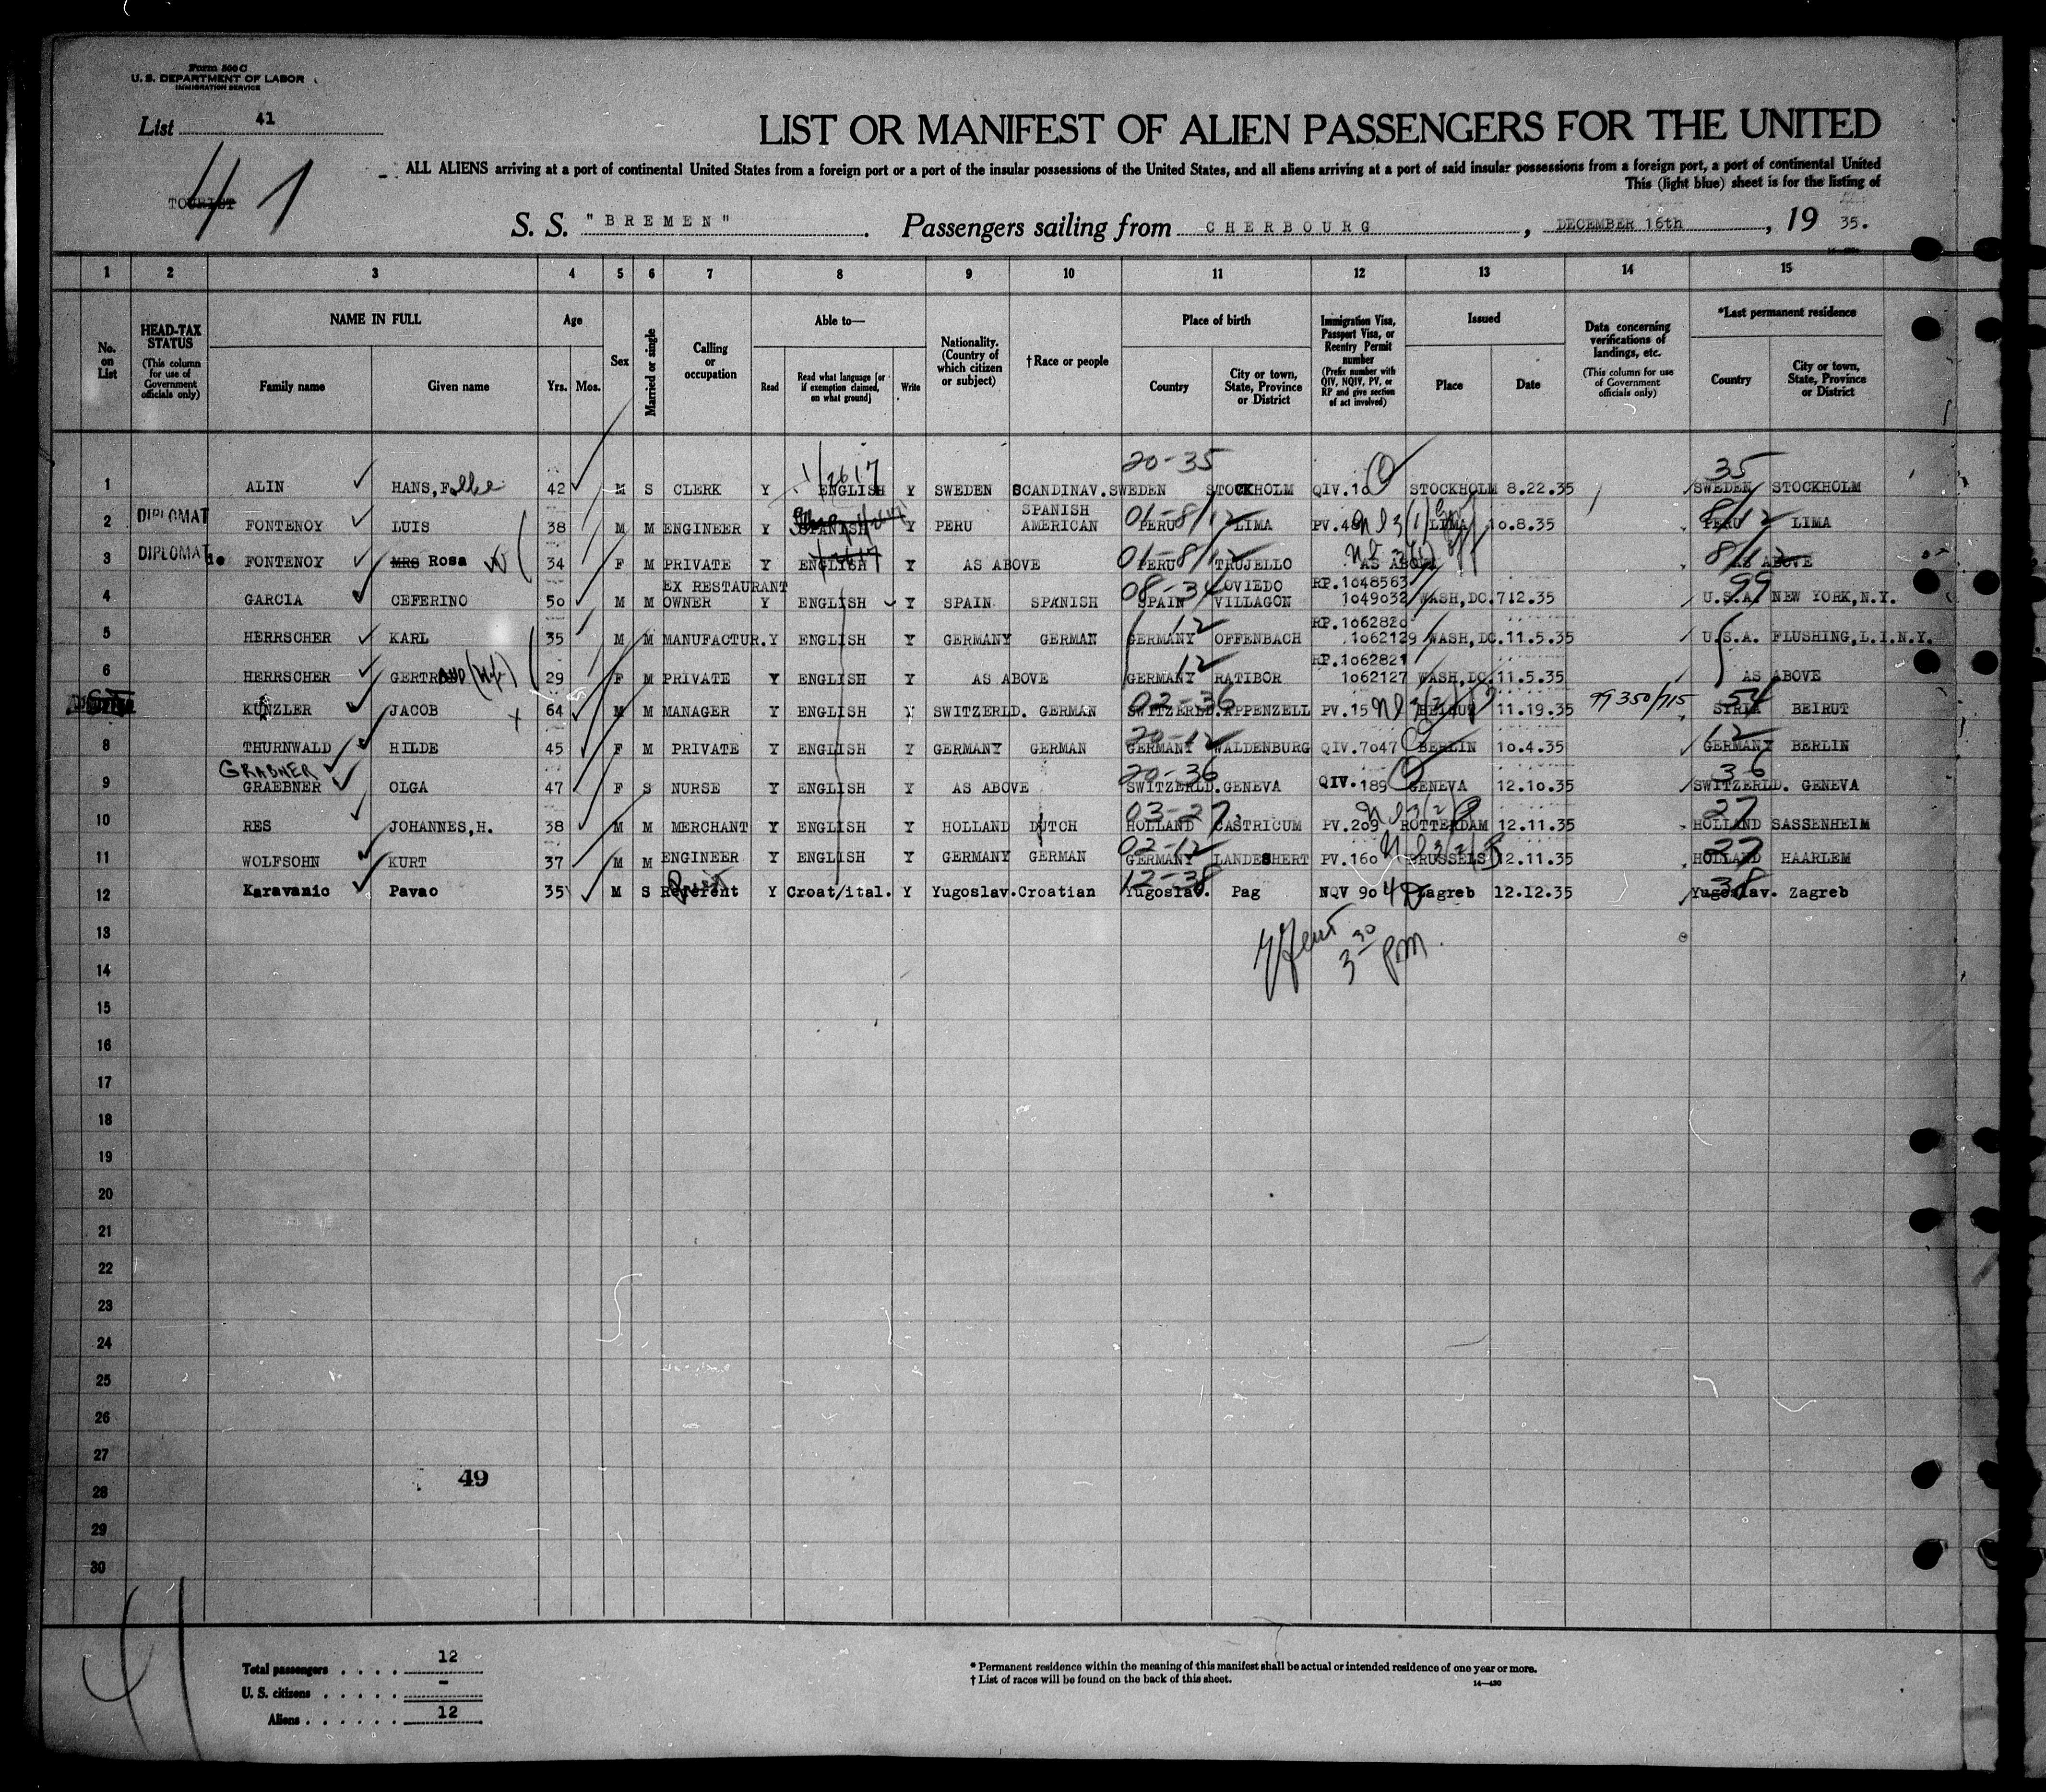 Form 500 C
U. S. DEPARTMENT OF LABOR
IMMIGRATION SERVICE
List 41
41
TOURIST
LIST OR MANIFEST OF ALIEN PASSENGERS FOR THE UNITED
ALL ALIENS arriving at a port of continental United States from a foreign port or a port of the insular possessions of the United States, and all aliens arriving at a port of said insular possessions from a foreign port, a port of continental United
This (light blue) sheet is for the listing of
S. S. "BREMEN" . Passengers sailing from CHERBOURG , DECEMBER 16th , 19 35.
1 2 3 4 5 6 7 8 9 10 11 12 13 14 15
No. on List
HEAD-TAX STATUS (This column for use of Government officials only)
NAME IN FULL Family name Given name
Age Yrs. Mos.
Sex
Married or single
Calling or occupation
Able to— Read Read what language [or if exemption claimed, on what ground] Write
Nationality. (Country of which citizen or subject)
† Race or people
Place of birth Country City or town, State, Province or District
Immigration Visa, Passport Visa, or Reentry Permit number (Prefix number with QIV, NQIV, PV, or RP and give section of act involved)
Issued Place Date
Data concerning verifications of landings, etc. (This column for use of Government officials only)
*Last permanent residence Country City or town, State, Province or District
20-35 35
1 ALIN HANS, Folke 42 M S CLERK Y ENGLISH Y SWEDEN SCANDINAV. SWEDEN STOCKHOLM QIV.10 STOCKHOLM 8.22.35 SWEDEN STOCKHOLM
2 DIPLOMAT FONTENOY LUIS 38 M M ENGINEER Y SPANISH Y PERU SPANISH AMERICAN 01-8/12 PERU LIMA PV.48 LIMA 10.8.35 8/12 PERU LIMA
3 DIPLOMAT de FONTENOY MRS Rosa W 34 F M PRIVATE Y ENGLISH Y AS ABOVE 01-8/12 PERU TRUJELLO AS ABOVE 8/12 AS ABOVE
4 GARCIA CEFERINO 50 M M EX RESTAURANT OWNER Y ENGLISH Y SPAIN SPANISH 08-34 SPAIN OVIEDO VILLAGON RP.1048563 1049032 WASH,DC. 712.35 99 U.S.A. NEW YORK,N.Y.
5 HERRSCHER KARL 35 M M MANUFACTUR. Y ENGLISH Y GERMANY GERMAN 12 GERMANY OFFENBACH RP.1062820 1062129 WASH,DC. 11.5.35 U.S.A. FLUSHING,L.I.N.Y.
6 HERRSCHER GERTRAUD (Wf) 29 F M PRIVATE Y ENGLISH Y AS ABOVE 12 GERMANY RATIBOR RP.1062821 1062127 WASH,DC. 11.5.35 AS ABOVE
KUNZLER JACOB X 64 M M MANAGER Y ENGLISH Y SWITZERLD. GERMAN 02-36 SWITZERLD. APPENZELL PV.15 BEIRUT 11.19.35 99 350/715 54 SYRIA BEIRUT
8 THURNWALD HILDE 45 F M PRIVATE Y ENGLISH Y GERMANY GERMAN 20-12 GERMANY WALDENBURG QIV.7047 BERLIN 10.4.35 12 GERMANY BERLIN
GRABNER
9 GRAEBNER OLGA 47 F S NURSE Y ENGLISH Y AS ABOVE 20-36 SWITZERLD. GENEVA QIV.189 GENEVA 12.10.35 36 SWITZERLD. GENEVA
10 RES JOHANNES,H. 38 M M MERCHANT Y ENGLISH Y HOLLAND DUTCH 03-27 HOLLAND CASTRICUM PV.209 ROTTERDAM 12.11.35 27 HOLLAND SASSENHEIM
11 WOLFSOHN KURT 37 M M ENGINEER Y ENGLISH Y GERMANY GERMAN 02-12 GERMANY LANDESHERT PV.160 BRUSSELS 12.11.35 27 HOLLAND HAARLEM
12 Karavanic Pavao 35 M S Referent Y Croat/ital. Y Yugoslav. Croatian 12-38 Yugoslav. Pag NQV 90 Zagreb 12.12.35 38 Yugoslav. Zagreb
13
3 30 pm
14
15
16
17
18
19
20
21
22
23
24
25
26
27
49
28
29
30
41
Total passengers . . . . 12
U. S. citizens . . . . . -
Aliens . . . . . . 12
* Permanent residence within the meaning of this manifest shall be actual or intended residence of one year or more.
† List of races will be found on the back of this sheet.
14—430